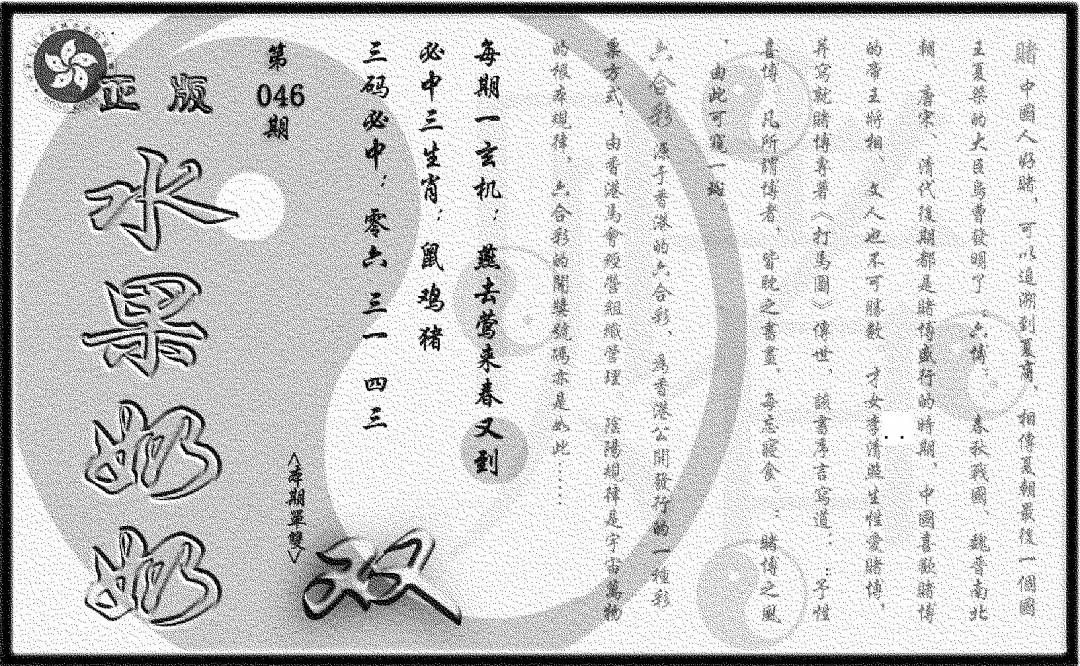 賭 中國人好賭，可以追溯到夏商，相傳夏朝最後一個國
王夏桀的大臣烏曹發明了“六博”。春秋戰國、魏晉南北
朝、唐宋、清代後期都是賭博盛行的時期，中國喜歡賭博
的帝王將相 文人也不可勝數 才女李清照生性愛賭博，
并寫就賭博專著〈打馬圖〉傳世，該書序言寫道：：予性
喜博 凡所謂博者，皆耽之書畫，每忘寢食 ：賭博之風
，由此可窺一斑。
六合彩 源于香港的六合彩、為香港公開發行的一種彩
票方式，由香港馬會經營組織管理 陰陽規律是宇宙萬物
的根本規律，六合彩的開獎號碼亦是如此……
每期一玄机：燕去莺来春又到
必中三生肖：鼠鸡猪
三码必中：零六 三一 四三
第
046
期
<本期單雙>
双
正版
水果奶奶